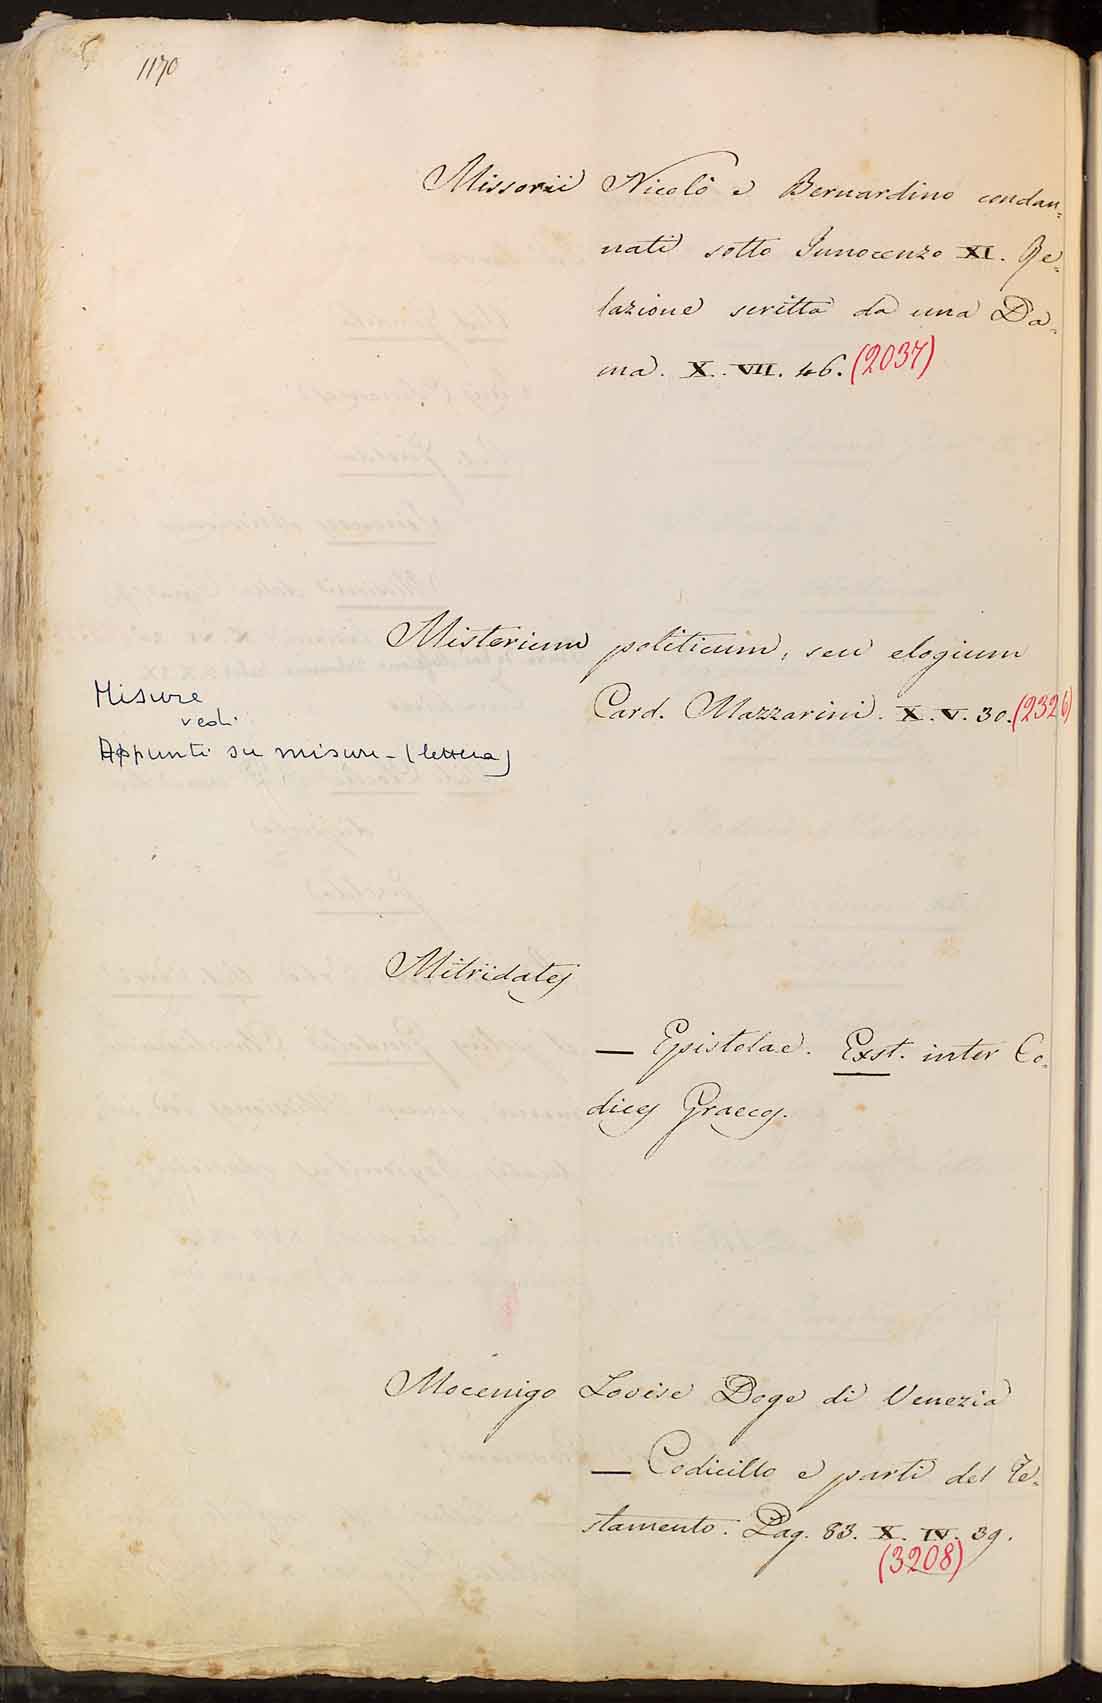 1170
Missorii Nicolò e Bernardino condan=
nati sotto Innocenzo XI. Re=
lazione scritta da una Da=
ma. X. VII. 46. (2037)
Misterium politicum, seu elogium
Card. Mazzarini. X. V. 30. (2326)
Misure
vedi
Appunti su misure - (lettera)
Mitridates
— Epistolae. Exst. inter Co=
dices Graecos.
Mocenigo Lovise Doge di Venezia
— Codicillo e parti del Te=
stamento. Pag. 83. X. IV. 39.
(3208)